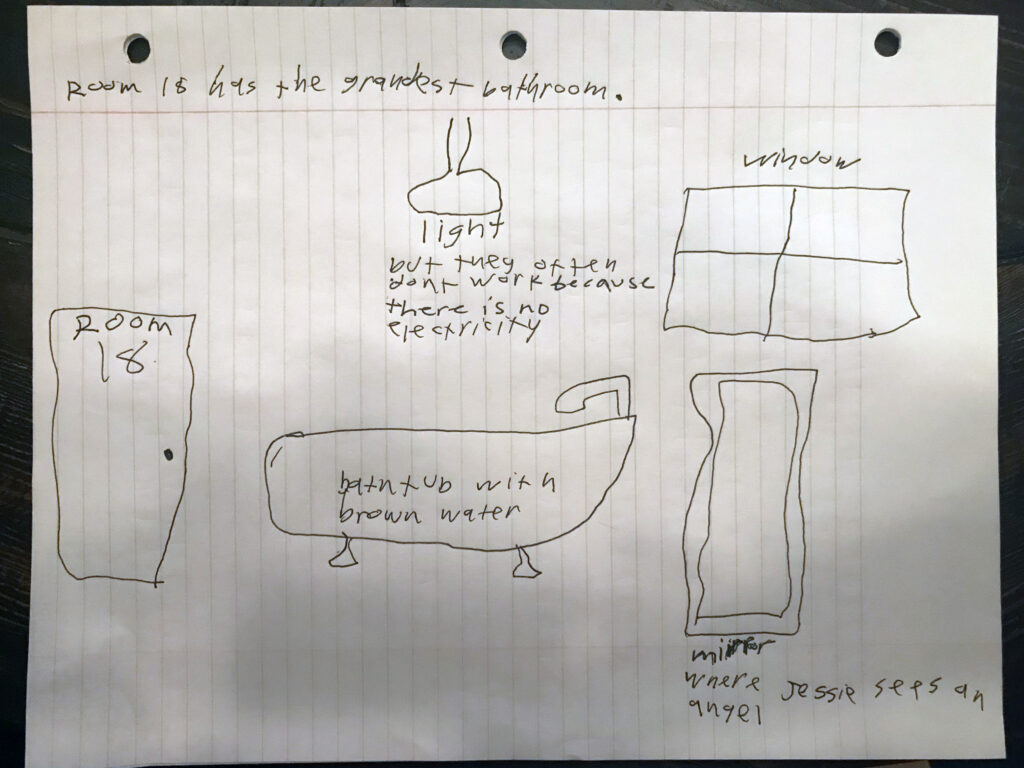 Room 18 has the grandest bathroom.
window
light
but they often
dont work because
there is no
electricity
Room
18
bathtub with
brown water
mirror
where Jessie sees an
angel